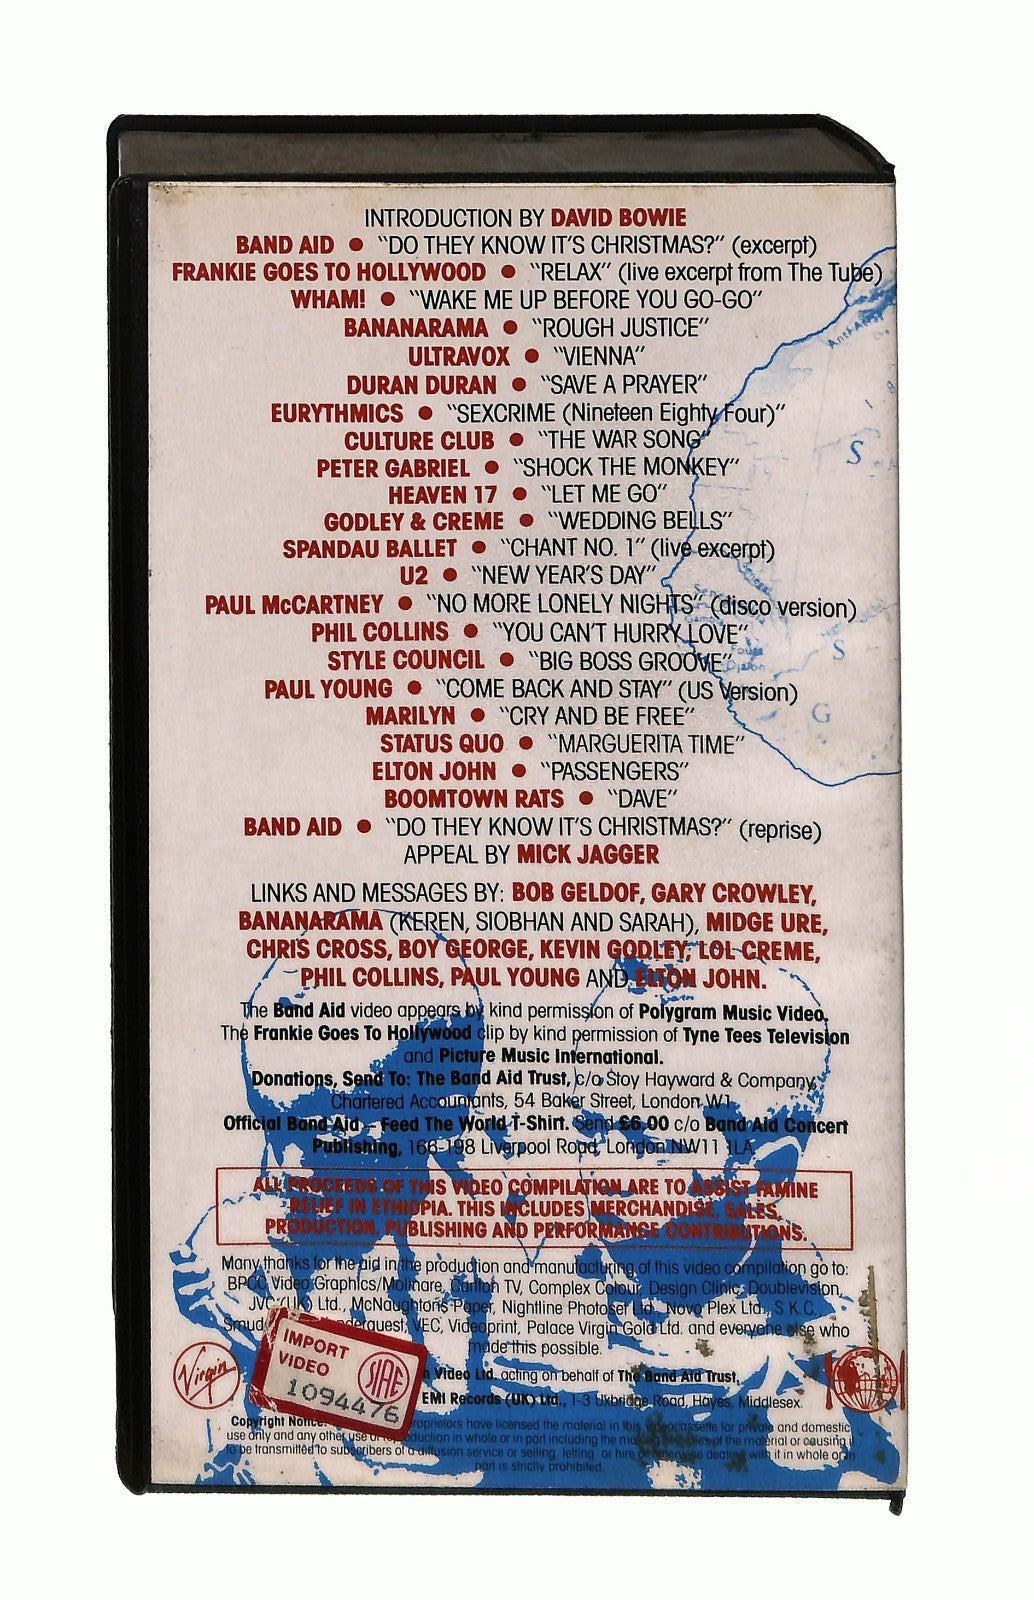 INTRODUCTION BY DAVID BOWIE
BAND AID ● "DO THEY KNOW IT'S CHRISTMAS?" (excerpt)
FRANKIE GOES TO HOLLYWOOD ● "RELAX" (live excerpt from The Tube)
WHAM! ● "WAKE ME UP BEFORE YOU GO-GO"
BANANARAMA ● "ROUGH JUSTICE"
ULTRAVOX ● "VIENNA"
DURAN DURAN ● "SAVE A PRAYER"
EURYTHMICS ● "SEXCRIME (Nineteen Eighty Four)"
CULTURE CLUB ● "THE WAR SONG"
PETER GABRIEL ● "SHOCK THE MONKEY"
HEAVEN 17 ● "LET ME GO"
GODLEY & CREME ● "WEDDING BELLS"
SPANDAU BALLET ● "CHANT NO. 1" (live excerpt)
U2 ● "NEW YEAR'S DAY"
PAUL McCARTNEY ● "NO MORE LONELY NIGHTS" (disco version)
PHIL COLLINS ● "YOU CAN'T HURRY LOVE"
STYLE COUNCIL ● "BIG BOSS GROOVE"
PAUL YOUNG ● "COME BACK AND STAY" (US Version)
MARILYN ● "CRY AND BE FREE"
STATUS QUO ● "MARGUERITA TIME"
ELTON JOHN ● "PASSENGERS"
BOOMTOWN RATS ● "DAVE"
BAND AID ● "DO THEY KNOW IT'S CHRISTMAS?" (reprise)
APPEAL BY MICK JAGGER
LINKS AND MESSAGES BY: BOB GELDOF, GARY CROWLEY,
BANANARAMA (KEREN, SIOBHAN AND SARAH), MIDGE URE,
CHRIS CROSS, BOY GEORGE, KEVIN GODLEY, LOL CREME,
PHIL COLLINS, PAUL YOUNG AND ELTON JOHN.
The Band Aid video appears by kind permission of Polygram Music Video.
The Frankie Goes To Hollywood clip by kind permission of Tyne Tees Television
and Picture Music International.
Donations, Send To: The Band Aid Trust, c/o Stoy Hayward & Company,
Chartered Accountants, 54 Baker Street, London W1
Official Band Aid – Feed The World T-Shirt. Send £6.00 c/o Band Aid Concert
Publishing, 166-198 Liverpool Road, London NW11 1LA
ALL PROCEEDS OF THIS VIDEO COMPILATION ARE TO ASSIST FAMINE
RELIEF IN ETHIOPIA. THIS INCLUDES MERCHANDISE, SALES,
PRODUCTION, PUBLISHING AND PERFORMANCE CONTRIBUTIONS.
Many thanks for the aid in the production and manufacturing of this video compilation go to:
BPCC Video Graphics/Molinare, Carlton TV, Complex Colour, Design Clinic, Doublevision,
JVC (UK) Ltd., McNaughtons Paper, Nightline Photoset Ltd., Novo Plex Ltd., S.K.C.
VEC, Videoprint, Palace Virgin Gold Ltd. and everyone else who
made this possible.
Video Ltd. acting on behalf of The Band Aid Trust.
EMI Records (UK) Ltd., 1-3 Uxbridge Road, Hayes, Middlesex.
Virgin
IMPORT
VIDEO
SIAE
1094476
Copyright Notice: proprietors have licensed the material in this videocassette for private and domestic
use only and any other use or reproduction in whole or in part including the making copies of the material or causing it
to be transmitted to subscribers of a diffusion service or selling, letting, or hire or otherwise dealing with it in whole or in
part is strictly prohibited.